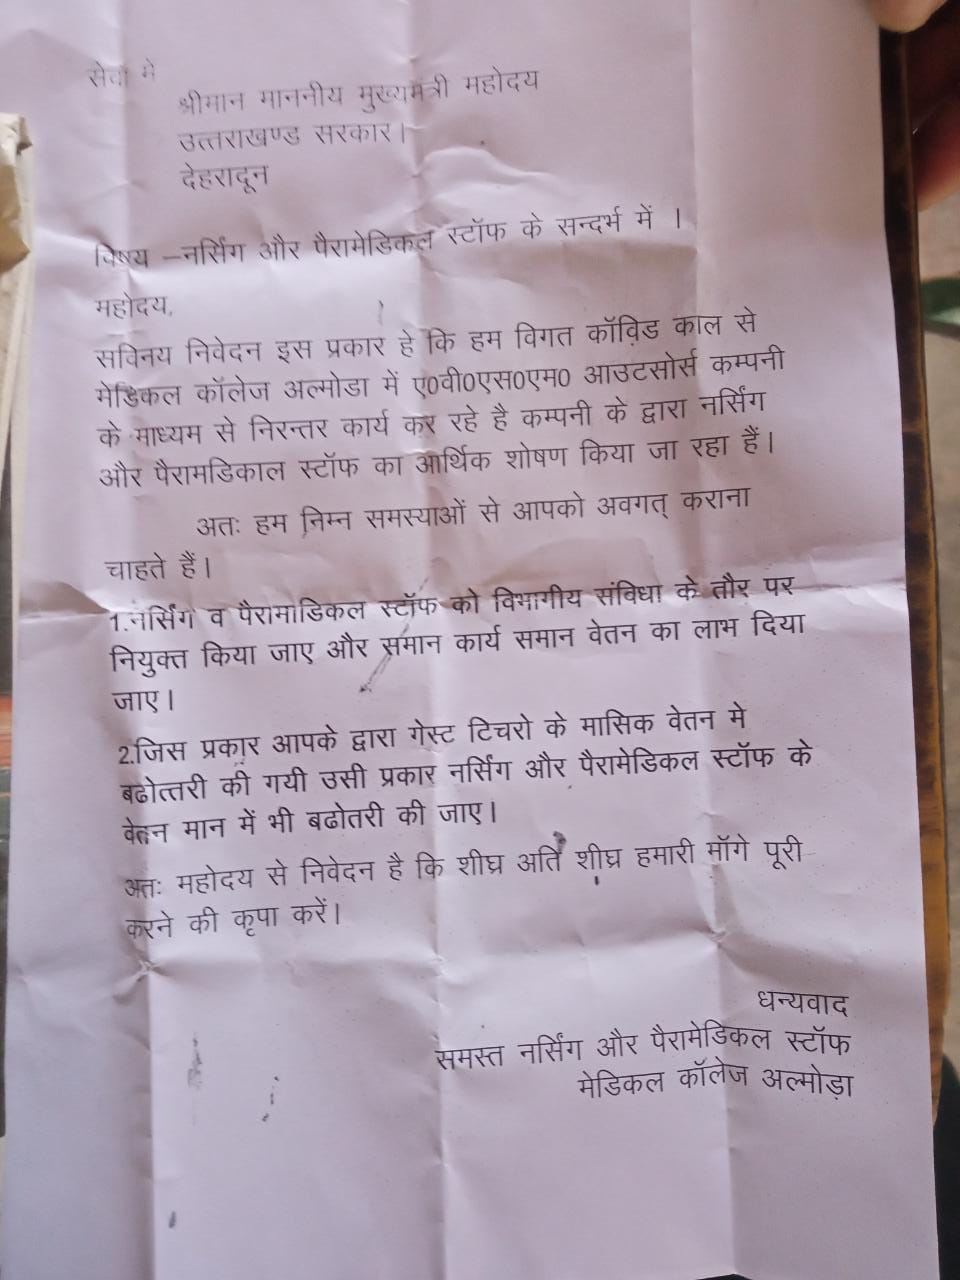 सेवा में
श्रीमान माननीय मुख्यमंत्री महोदय
उत्तराखण्ड सरकार।
देहरादून
विषय –नर्सिंग और पैरामेडिकल स्टॉफ के सन्दर्भ में ।
महोदय,
सविनय निवेदन इस प्रकार हे कि हम विगत कॉविड काल से
मेडिकल कॉलेज अल्मोडा में ए0वी0एस0एम0 आउटसोर्स कम्पनी
के माध्यम से निरन्तर कार्य कर रहे है कम्पनी के द्वारा नर्सिंग
और पैरामडिकाल स्टॉफ का आर्थिक शोषण किया जा रहा हैं।
अतः हम निम्न समस्याओं से आपको अवगत् कराना
चाहते हैं।
1.नर्सिंग व पैरामाडिकल स्टॉफ को विभागीय संविधा के तौर पर
नियुक्त किया जाए और समान कार्य समान वेतन का लाभ दिया
जाए।
2.जिस प्रकार आपके द्वारा गेस्ट टिचरो के मासिक वेतन मे
बढोत्तरी की गयी उसी प्रकार नर्सिंग और पैरामेडिकल स्टॉफ के
वेतन मान में भी बढोतरी की जाए।
अतः महोदय से निवेदन है कि शीघ्र अति शीघ्र हमारी मॉगे पूरी
करने की कृपा करें।
धन्यवाद
समस्त नर्सिंग और पैरामेडिकल स्टॉफ
मेडिकल कॉलेज अल्मोड़ा